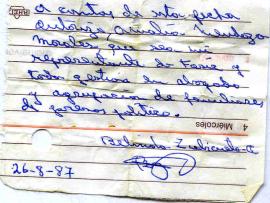 A contar de esta fecha
autorizo, Amalia Hidalgo
Morales, que sea mi
representante de FASIC y
toda gestión de abogados
y agrupación de familiares
de presos políticos.
4 Miércoles
Belinda Zubicueta C
26-8-87